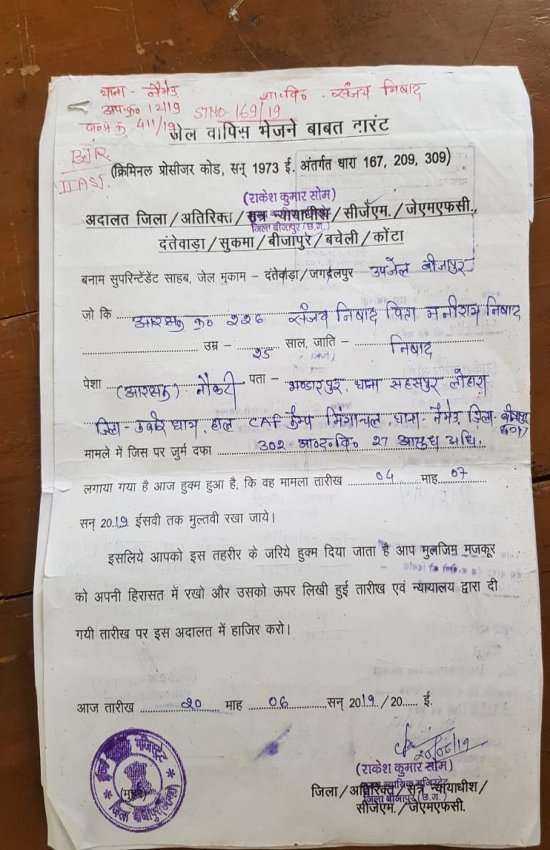 थाना - नैमेड़
अप.क्र० 12/19
फा०मे क्र 411/19
ST NO-169/19
शा.वि० . संजय निषाद
BJR
II ASJ
जेल वापिस भेजने बाबत वारंट
(क्रिमिनल प्रोसीजर कोड, सन् 1973 ई. अंतर्गत धारा 167, 209, 309)
(राकेश कुमार सोम)
अदालत जिला/अतिरिक्त/सत्र न्यायाधीश/सीजेएम./जेएमएफसी.,
जिला बीजापुर (छ.ग.)
दंतेवाड़ा/सुकमा/बीजापुर/बचेली/कोंटा
बनाम सुपरिन्टेंडेंट साहब, जेल मुकाम – दंतेवाड़ा/जगदलपुर उपजेल बीजापुर
जो कि आरक्षक क्र० २२६ संजय निषाद पिता मनीराम निषाद
उम्र – २८ साल, जाति – निषाद
पेशा (आरक्षक) नौकरी पता – भण्डारपुर, थाना सहसपुर लोहारा
जिला- कबीरधाम, हाल CAF कैम्प मिंगाचल, थाना- नैमेड़ जिला- बीजापुर
मामले में जिस पर जुर्म दफा 302 भा०द०वि० 27 आयुध अधि.
लगाया गया है आज हुक्म हुआ है, कि वह मामला तारीख 04 माह 07
सन् 2019 ईसवी तक मुल्तवी रखा जाये।
इसलिये आपको इस तहरीर के जरिये हुक्म दिया जाता है आप मुलजिम मजकूर
को अपनी हिरासत में रखो और उसको ऊपर लिखी हुई तारीख एवं न्यायालय द्वारा दी
गयी तारीख पर इस अदालत में हाजिर करो।
आज तारीख 20 माह 06 सन् 2019 / 20..... ई.
20/06/19
(राकेश कुमार सोम)
मुख्य न्यायिक मजिस्ट्रेट
जिला/अतिरिक्त/सत्र न्यायाधीश/
जिला बीजापुर (छ.ग.)
सीजेएम./जेएमएफसी.
(मुहर)